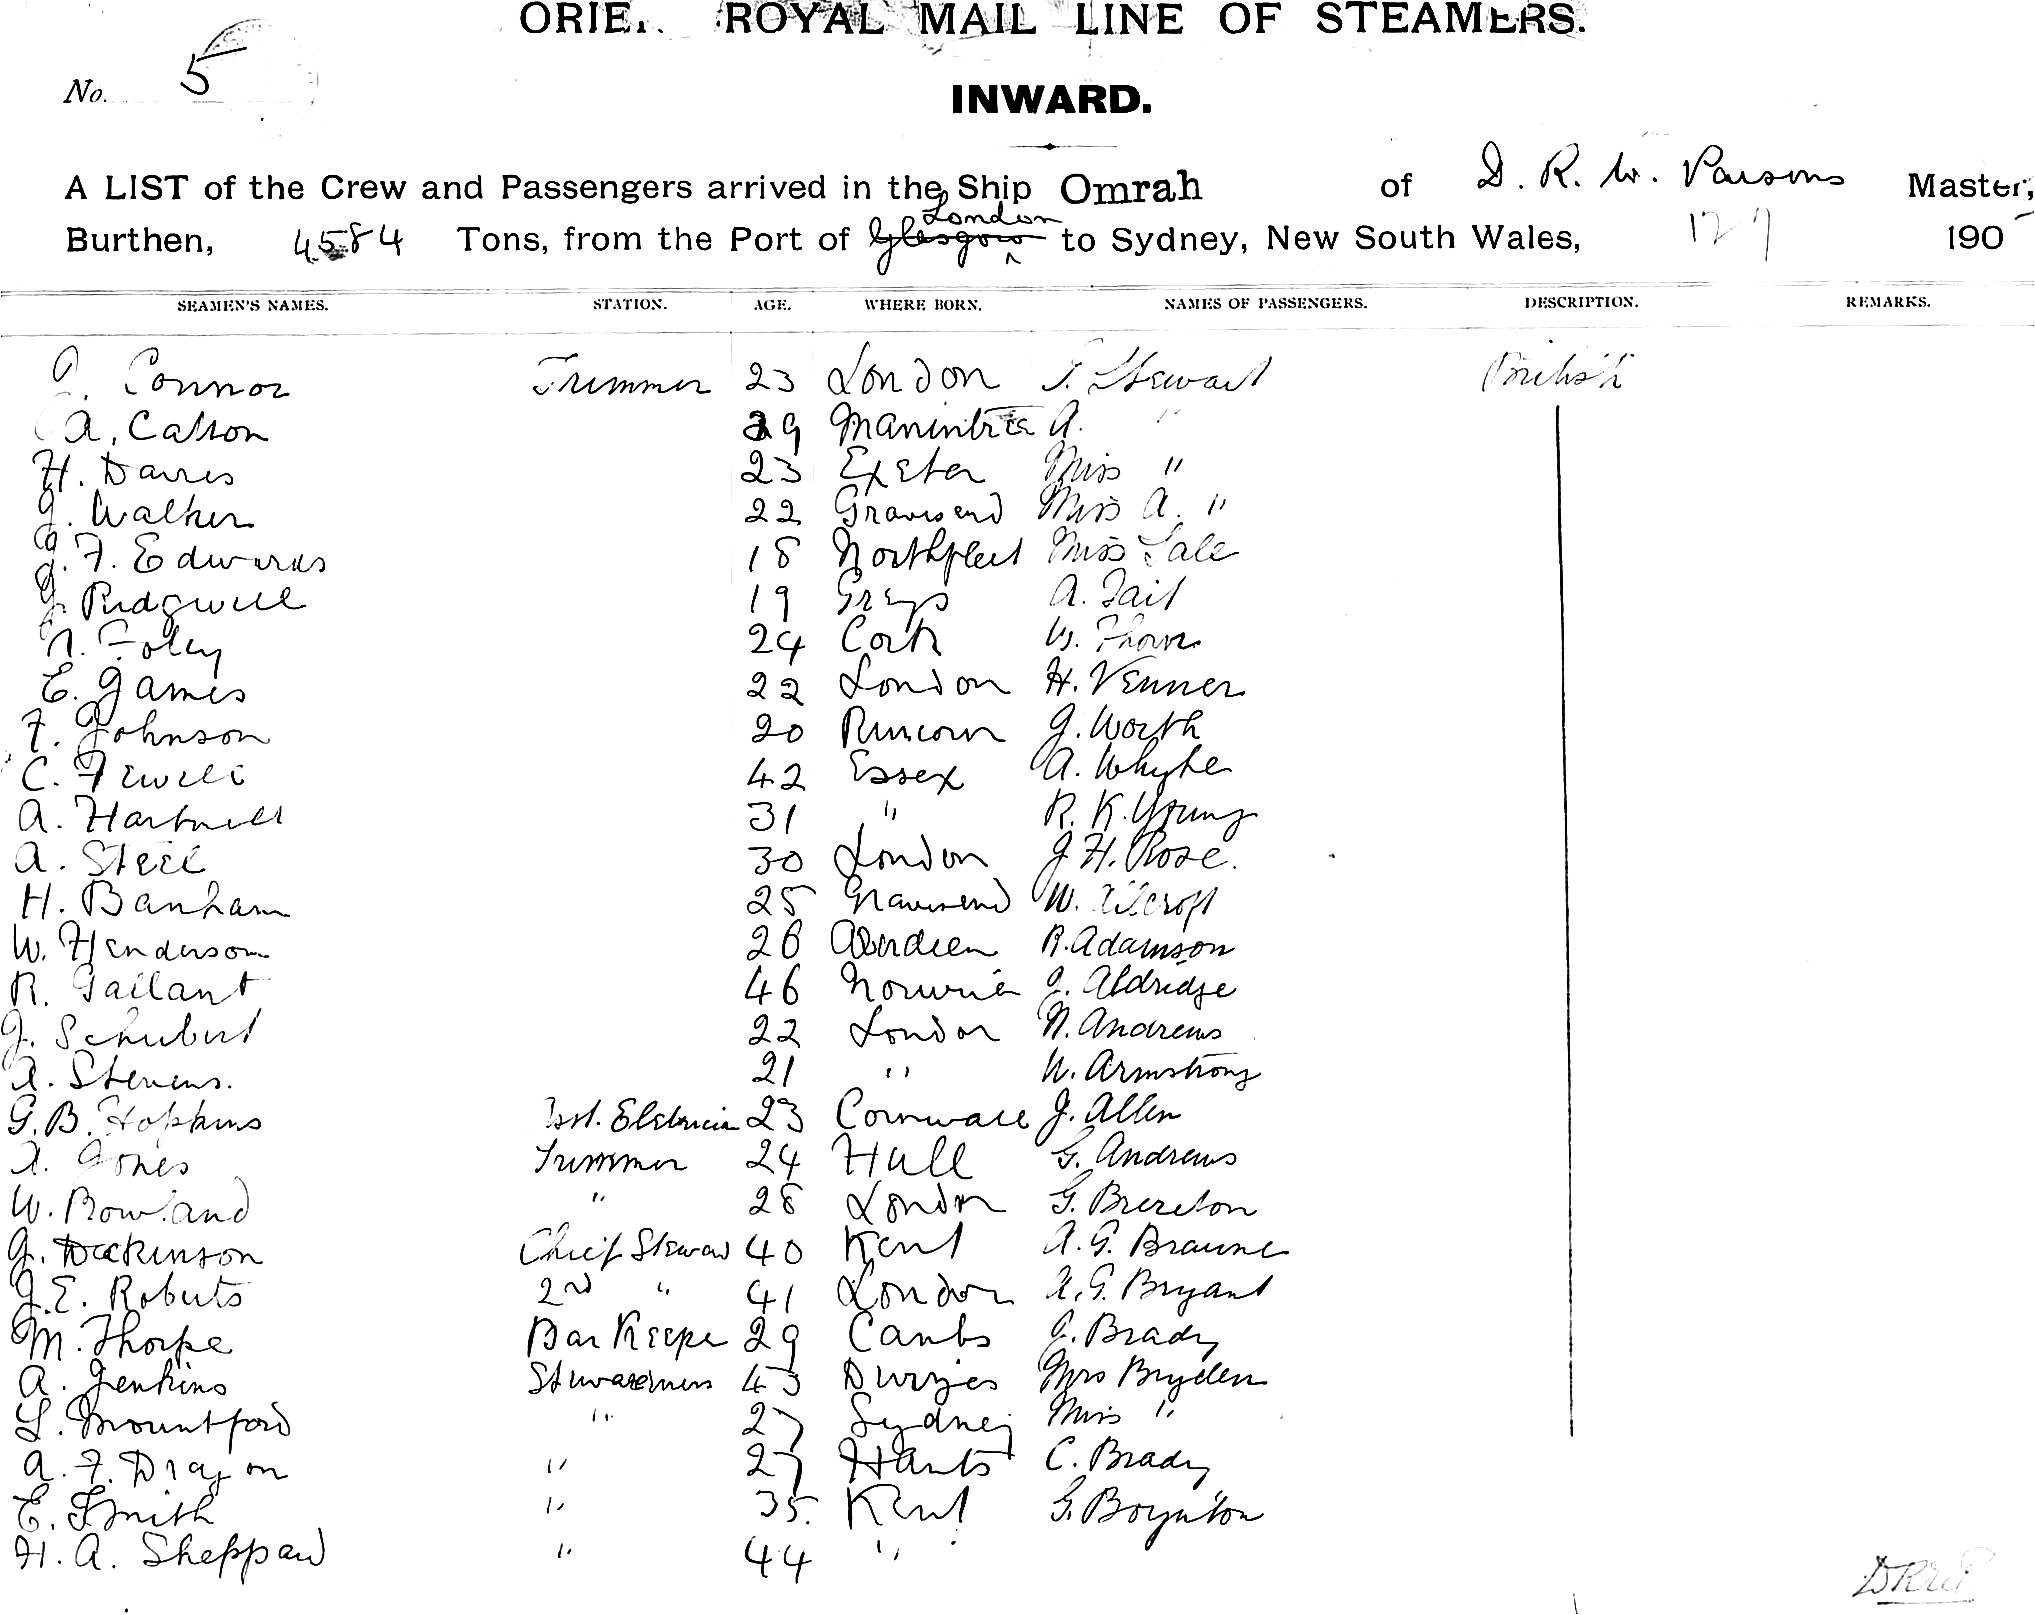 ROYAL MAIL LINE OF STEAMERS.
No. 5
INWARD.
A LIST of the Crew and Passengers arrived in the Ship Omrah of D. R. W. Parsons Master,
London
Burthen, 4584 Tons, from the Port of Glasgow to Sydney, New South Wales, 190
SEAMEN'S NAMES. STATION. AGE. WHERE BORN. NAMES OF PASSENGERS. DESCRIPTION. REMARKS.
Connor Trimmer 23 London T. Stewart British
A. Calson 29 A. "
H. Davies 23 Exeter Miss "
J. Walker 22 Gravesend Miss A. "
J. F. Edwards 18 Northfleet Miss
J. Ridgwell 19 Grays A. Tait
Foley 24 Cork W.
E. James 22 London H. Venner
F. Johnson 20 Runcorn J. Worth
C. Fewell 42 Essex A. Whyte
A. Hartwell 31 " R. K. Young
A. Steel 30 London J. H. Rose.
H. Banham 25 Gravesend W.
W. Henderson 26 Aberdeen R. Adamson
R. Gallant 46 J. Aldridge
J. Schubert 22 London N. Andrews
A. Stevens. 21 " W. Armstrong
G. B. Hopkins 23 Cornwall J. Allen
A. Jones Trimmer 24 Hull G. Andrews
W. Rowland " 28 London G. Brereton
J. Dickinson Chief Steward 40 Kent A. G. Braune
J. E. Roberts 2nd " 41 London A. G. Bryant
M. Thorpe Bar Keeper 29 Cambs J. Brady
A. Jenkins 43 Mrs Bryden
L. Mountford " 27 Sydney Miss "
A. F. Dragon " 27 Hants C. Brady
E. Smith " 35. Kent G. Boynton
H. A. Sheppard " 44 "